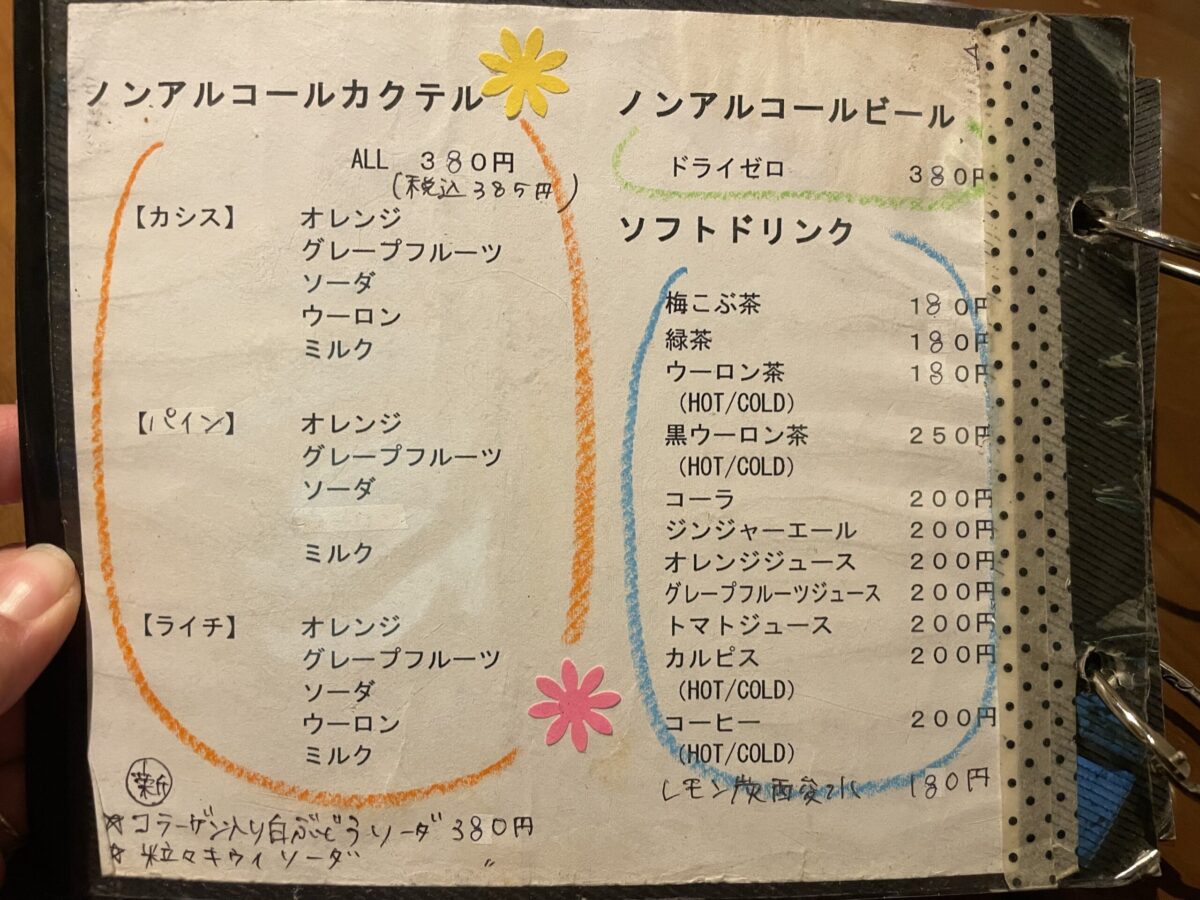 ノンアルコールカクテル
ALL 380円
(税込385円)
【カシス】 オレンジ
グレープフルーツ
ソーダ
ウーロン
ミルク
【パイン】 オレンジ
グレープフルーツ
ソーダ
ミルク
【ライチ】 オレンジ
グレープフルーツ
ソーダ
ウーロン
ミルク
新
☆コラーゲン入り白ぶどうソーダ 380円
☆粒々キウイソーダ 〃
ノンアルコールビール
ドライゼロ 380円
ソフトドリンク
梅こぶ茶 180円
緑茶 180円
ウーロン茶 180円
(HOT/COLD)
黒ウーロン茶 250円
(HOT/COLD)
コーラ 200円
ジンジャーエール 200円
オレンジジュース 200円
グレープフルーツジュース 200円
トマトジュース 200円
カルピス 200円
(HOT/COLD)
コーヒー 200円
(HOT/COLD)
レモン炭酸水 180円